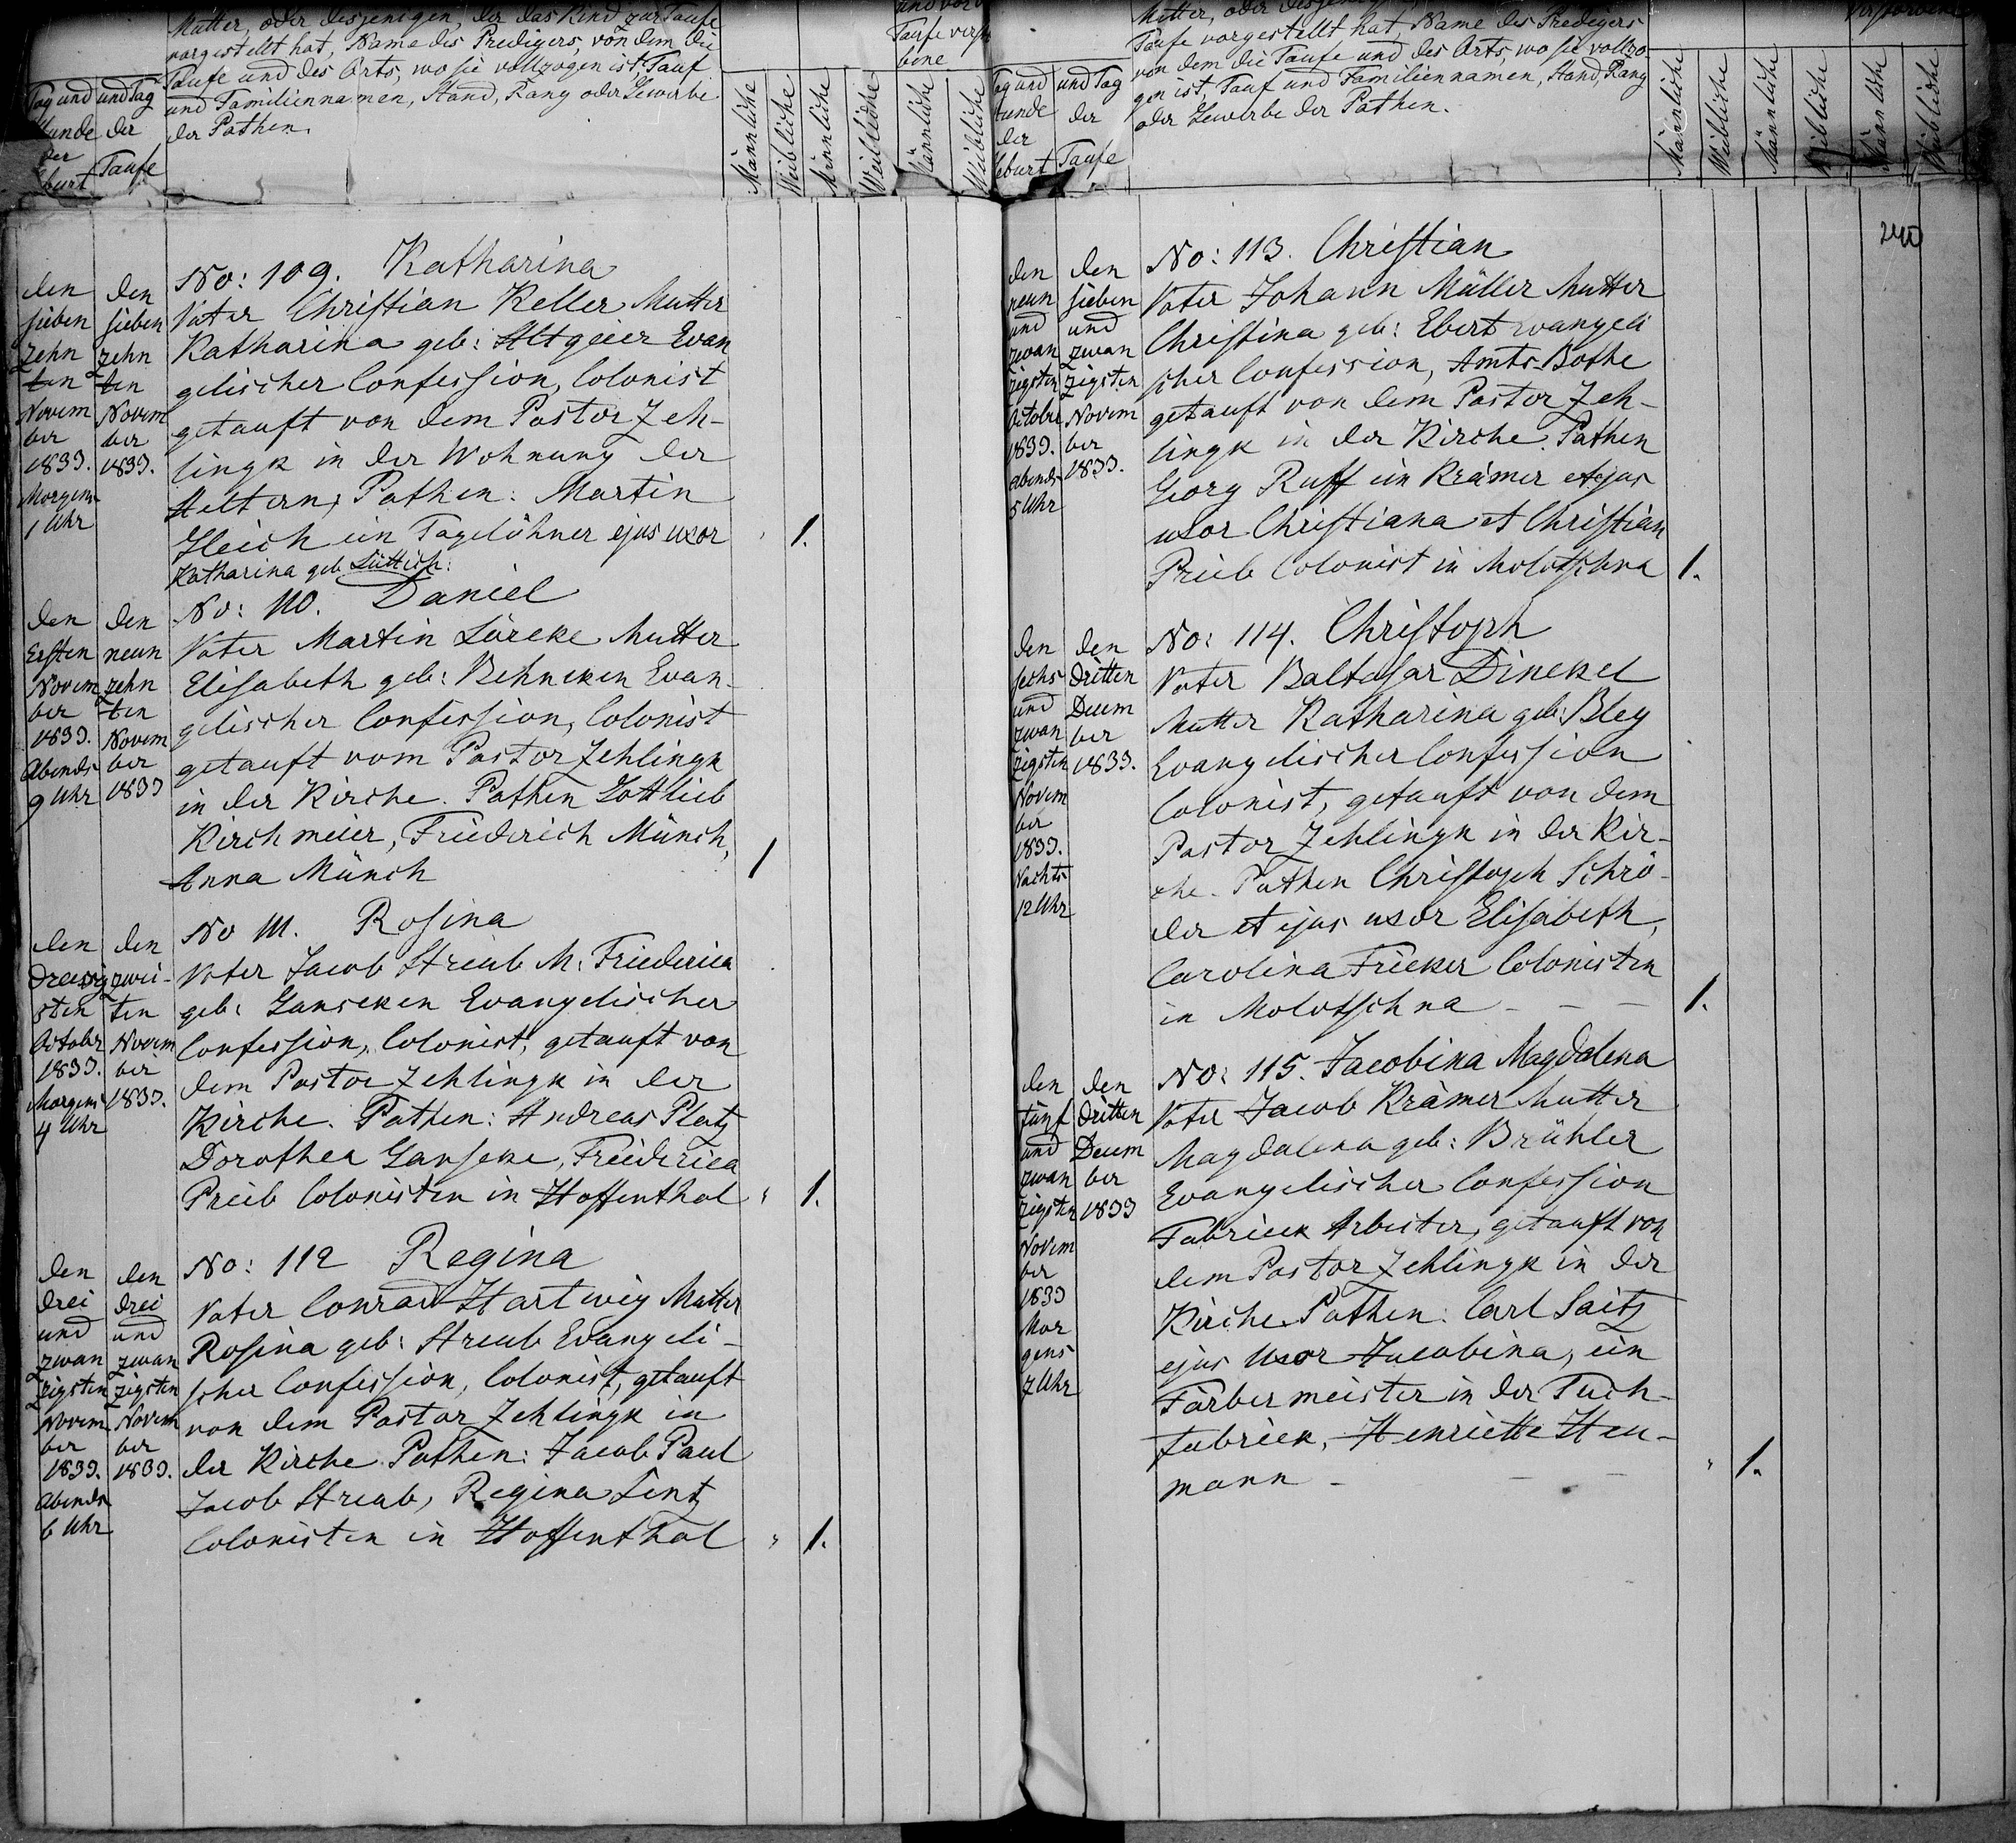 Mutter, oder desjenigen, der das Kind zur Taufe
vorgestellt hat, Name des Predigers, von dem die
Taufe und des Orts, wo sie vollzogen ist, Tauf
und Familiennamen, Stand, Rang oder Gewerbe
der Pathen.
Tag und
Stunde
der
Geburt
und Tag
der
Taufe
Männliche
Weibliche
Männliche
Weibliche
Männliche
Weibliche
den
sieben
zehn
ten
Novem
ber
1833.
Morgens
1 Uhr
den
sieben
zehn
ten
Novem
ber
1833.
No: 109. Katharina
Vater Christian Keller Mutter
Katharina geb: Altgeier Evan
gelischer Confession, Colonist
getauft von dem Pastor Zeh-
lingk in der Wohnung der
Aeltern, Pathen: Martin
Gleich ein Tagelöhner ejus uxor
Katharina geb Lüttich:
1.
den
Ersten
Novem
ber
1833.
Abends
9 Uhr
den
neun
zehn
ten
Novem
ber
1833
No: 110. Daniel
Vater Martin Lürcke Mutter
Elisabeth geb: Behncken Evan-
gelischer Confession, Colonist
getauft vom Pastor Zehlingk
in der Kirche. Pathen Gottlieb
Kirchmeier, Friederich Münch,
Anna Münch
1
den
dreissig
sten
October
1833.
Morgens
4 Uhr
den
zwei-
ten
Novem
ber
1833.
No 111. Rosina
Vater Jacob Streub M: Friederica
geb: Ganseken Evangelischer
Confession, Colonist, getauft von
dem Pastor Zehlingk in der
Kirche. Pathen: Andreas Platz
Dorothea Ganseke, Friederica
Prieb Colonisten in Hoffenthal
1.
den
drei
und
zwan
zigsten
Novem
ber
1833.
Abends
6 Uhr
den
drei
und
zwan
zigsten
Novem
ber
1833.
No: 112 Regina
Vater Conrad Hartwig Mutter
Rosina geb: Streub Evangeli-
scher Confession, Colonist, getauft
von dem Pastor Zehlingk in
der Kirche Pathen: Jacob Paul
Jacob Streub, Regina Lentz
Colonisten in Hoffenthal
1.
Mutter, oder
Taufe vorgestellt hat, Name des Predigers
von dem die Taufe und des Orts, wo sie vollzo-
gen ist, Tauf und Familiennamen, Stand, Rang
oder Gewerbe der Pathen.
und Tag
der
Taufe
Männliche
Weibliche
Männliche
Weibliche
Männliche
Weibliche
240
den
neun
und
zwan
zigsten
October
1833.
Abends
5 Uhr
den
sieben
und
zwan
zigsten
Novem
ber
1833.
No: 113. Christian
Vater Johann Müller Mutter
Christina geb: Ebert Evangeli
scher Confession, Amts-Bothe
getauft von dem Pastor Zeh-
lingk in der Kirche. Pathen
Georg Ruff ein Krämer ejus
uxor Christiana et Christian
Prieb Colonist in Molotschna
1.
den
sechs
und
zwan
zigsten
Novem
ber
1833.
Nachts
12 Uhr
den
dritten
Decem
ber
1833.
No: 114. Christoph
Vater Baltasar Dinekel
Mutter Katharina geb: Bley
Evangelischer Confession
Colonist, getauft von dem
Pastor Zehlingk in der Kir-
che. Pathen Christoph Schrö-
der et ejus uxor Elisabeth,
Carolina Fricker Colonisten
in Molotschna - - -
1.
den
fünf
und
zwan
zigsten
Novem
ber
1833
Mor
gens
7 Uhr
den
dritten
Decem
ber
1833
No: 115. Jacobina Magdalena
Vater Jacob Krämer Mutter
Magdalena geb: Brühler
Evangelischer Confession
Fabrick Arbeiter, getauft von
dem Pastor Zehlingk in der
Kirche Pathen: Carl Saitz
ejus uxor Jacobina, ein
Färbermeister in der Tuch-
fabrick, Henriette Heu-
mann - - -
1.